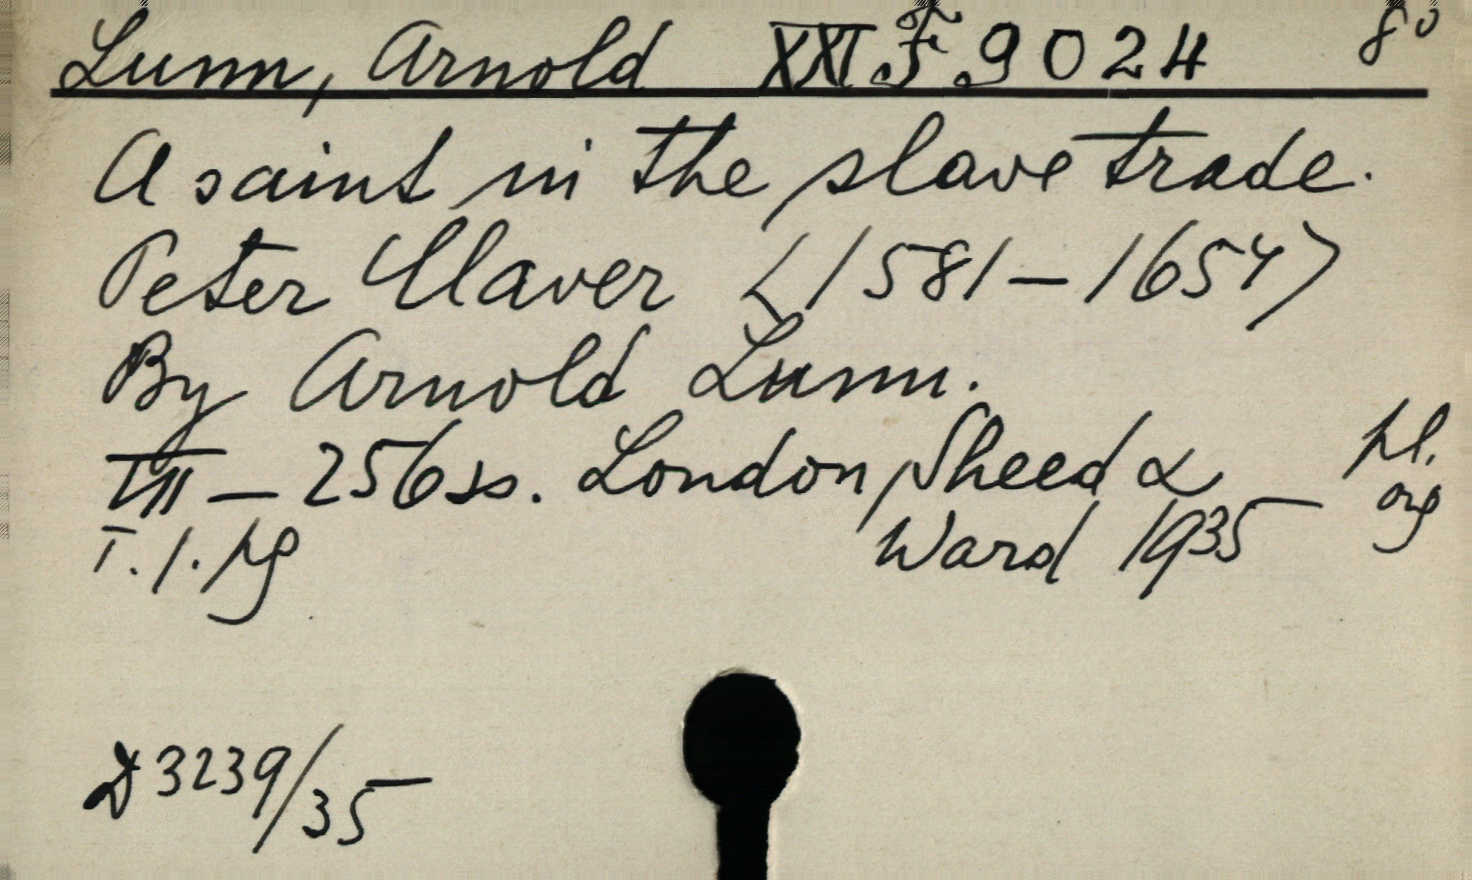 Lunn, Arnold XXI.F.9024 8°
A saint in the slave trade.
Peter Claver <1581-1654>
By Arnold Lunn.
VII - 256 ss. London, Sheed & pl.
Ward 1935 org
T. 1. pg
D 3239/35